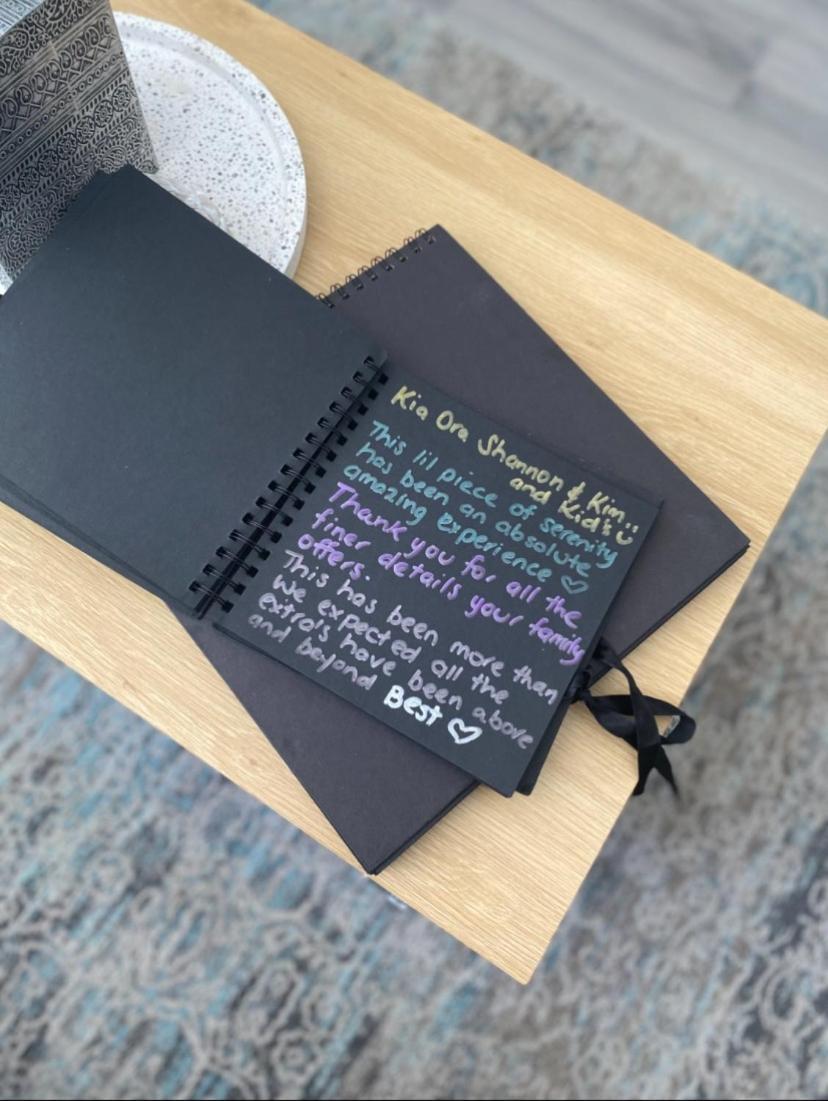 Kia Ora Shannon & Kim
and Kid's
This lil piece of serenity
has been an absolute
amazing experience ♡
Thank you for all the
finer details your family
offers.
This has been more than
we expected all the
extra's have been above
and beyond Best ♡